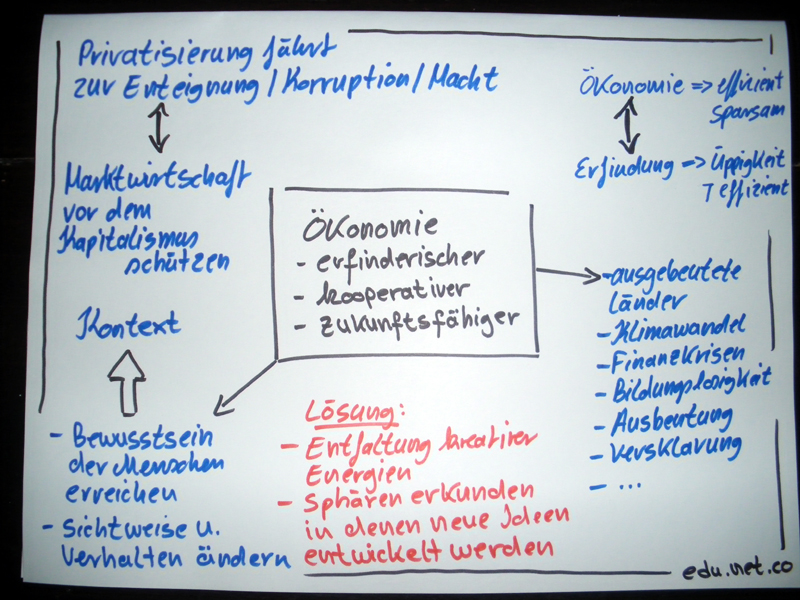 Privatisierung führt
zur Enteignung / Korruption / Macht
Marktwirtschaft
vor dem
Kapitalismus
schützen
Kontext
- Bewusstsein
der Menschen
erreichen
- Sichtweise u.
Verhalten ändern
ÖKonomie
- erfinderischer
- kooperativer
- zukunftsfähiger
Lösung:
- Entfaltung kreativer
Energien
- Sphären erkunden
in denen neue Ideen
entwickelt werden
ÖKonomie => effizient
sparsam
Erfindung => Üppigkeit
effizient
- ausgebeutete
Länder
- Klimawandel
- Finanzkrisen
- Bildungslosigkeit
- Ausbeutung
- Versklavung
- ...
edu.net.co